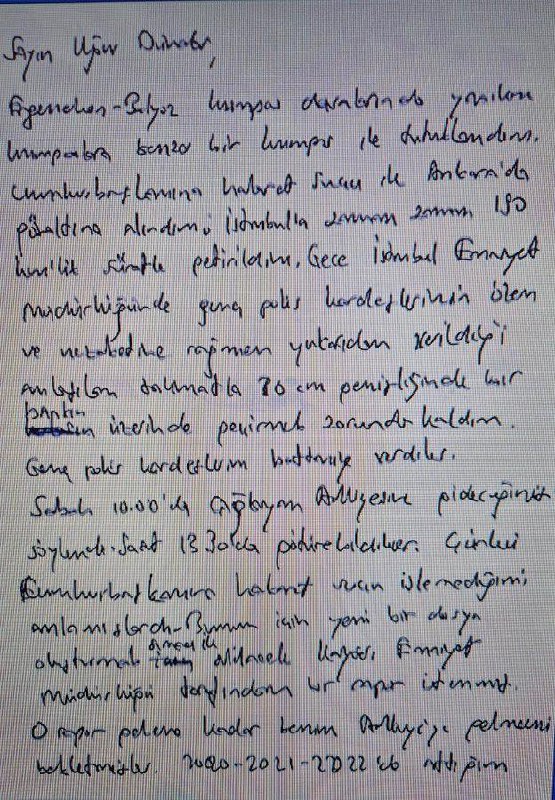 Sayın Uğur Dündar,
Ergenekon-Balyoz kumpas davalarında yapılan
kumpaslara benzer bir kumpas ile tutuklandım.
Cumhurbaşkanına hakaret suçu ile Ankara'da
gözaltına alındım, İstanbul'a zaman zaman 190
km'lik süratle getirildim. Gece İstanbul Emniyet
Müdürlüğünde genç polis kardeşlerimin özen
ve nezaketine rağmen yukarıdan verildiği
anlaşılan talimatla 70 cm genişliğinde bir
bankın üzerinde geçirmek zorunda kaldım.
Genç polis kardeşlerim battaniye verdiler.
Sabah 10.00'da Çağlayan Adliyesine gideceğimiz
söylendi. Saat 13.30'da götürebildiler. Çünkü
Cumhurbaşkanına hakaret suçu işlemediğimi
anlamışlardı. Bunun için yeni bir dosya
oluşturmak Emniyet
Müdürlüğü tarafından bir rapor istenmiş.
O rapor gelene kadar benim Adliyeye gelmemi
bekletmişler. 2020-2021-2022'de attığım